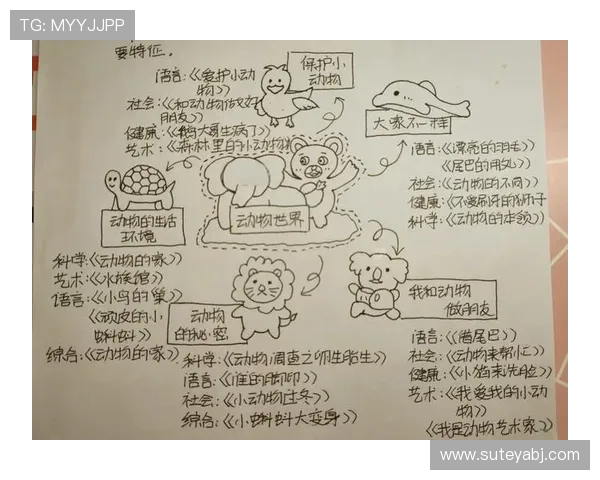 TG: MYYJJPP
要特征.
保护小
动物
语言:《爱护小动
物》
社会:《和动物做好
朋友》
健康:《鹅大哥生病了》
艺术:《森林里的小动物》
大家不一样
语言:《漂亮的羽毛》
《尾巴的用处》
社会:《动物的不同》
健康:《不爱刷牙的狮子》
科学:《动物的本领》
动物世界
动物的生活
环境
科学:《动物的家》
艺术:《水族馆》
语言:《小鸟的巢》
《顽皮的小
蝌蚪》
综合:《动物的家》
动物
的秘密
科学:《动物调查之卵生胎生》
语言:《谁的脚印》
社会:《小动物过冬》
综合:《小蝌蚪大变身》
我和动物
做朋友
语言:《借尾巴》
社会:《动物来帮忙》
健康:《小猫来洗脸》
艺术:《我爱我的小动
物》
《我是动物艺术家》
www.suteyabj.com